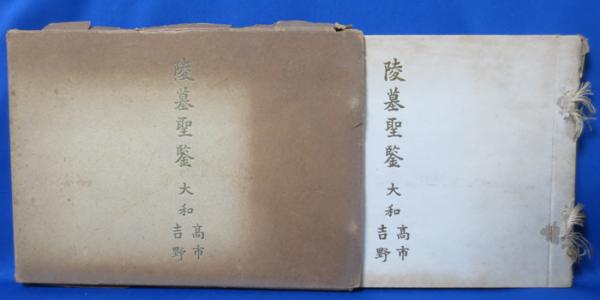 陵墓聖鑒
大和
高市
吉野
陵墓聖鑒
大和
高市
吉野